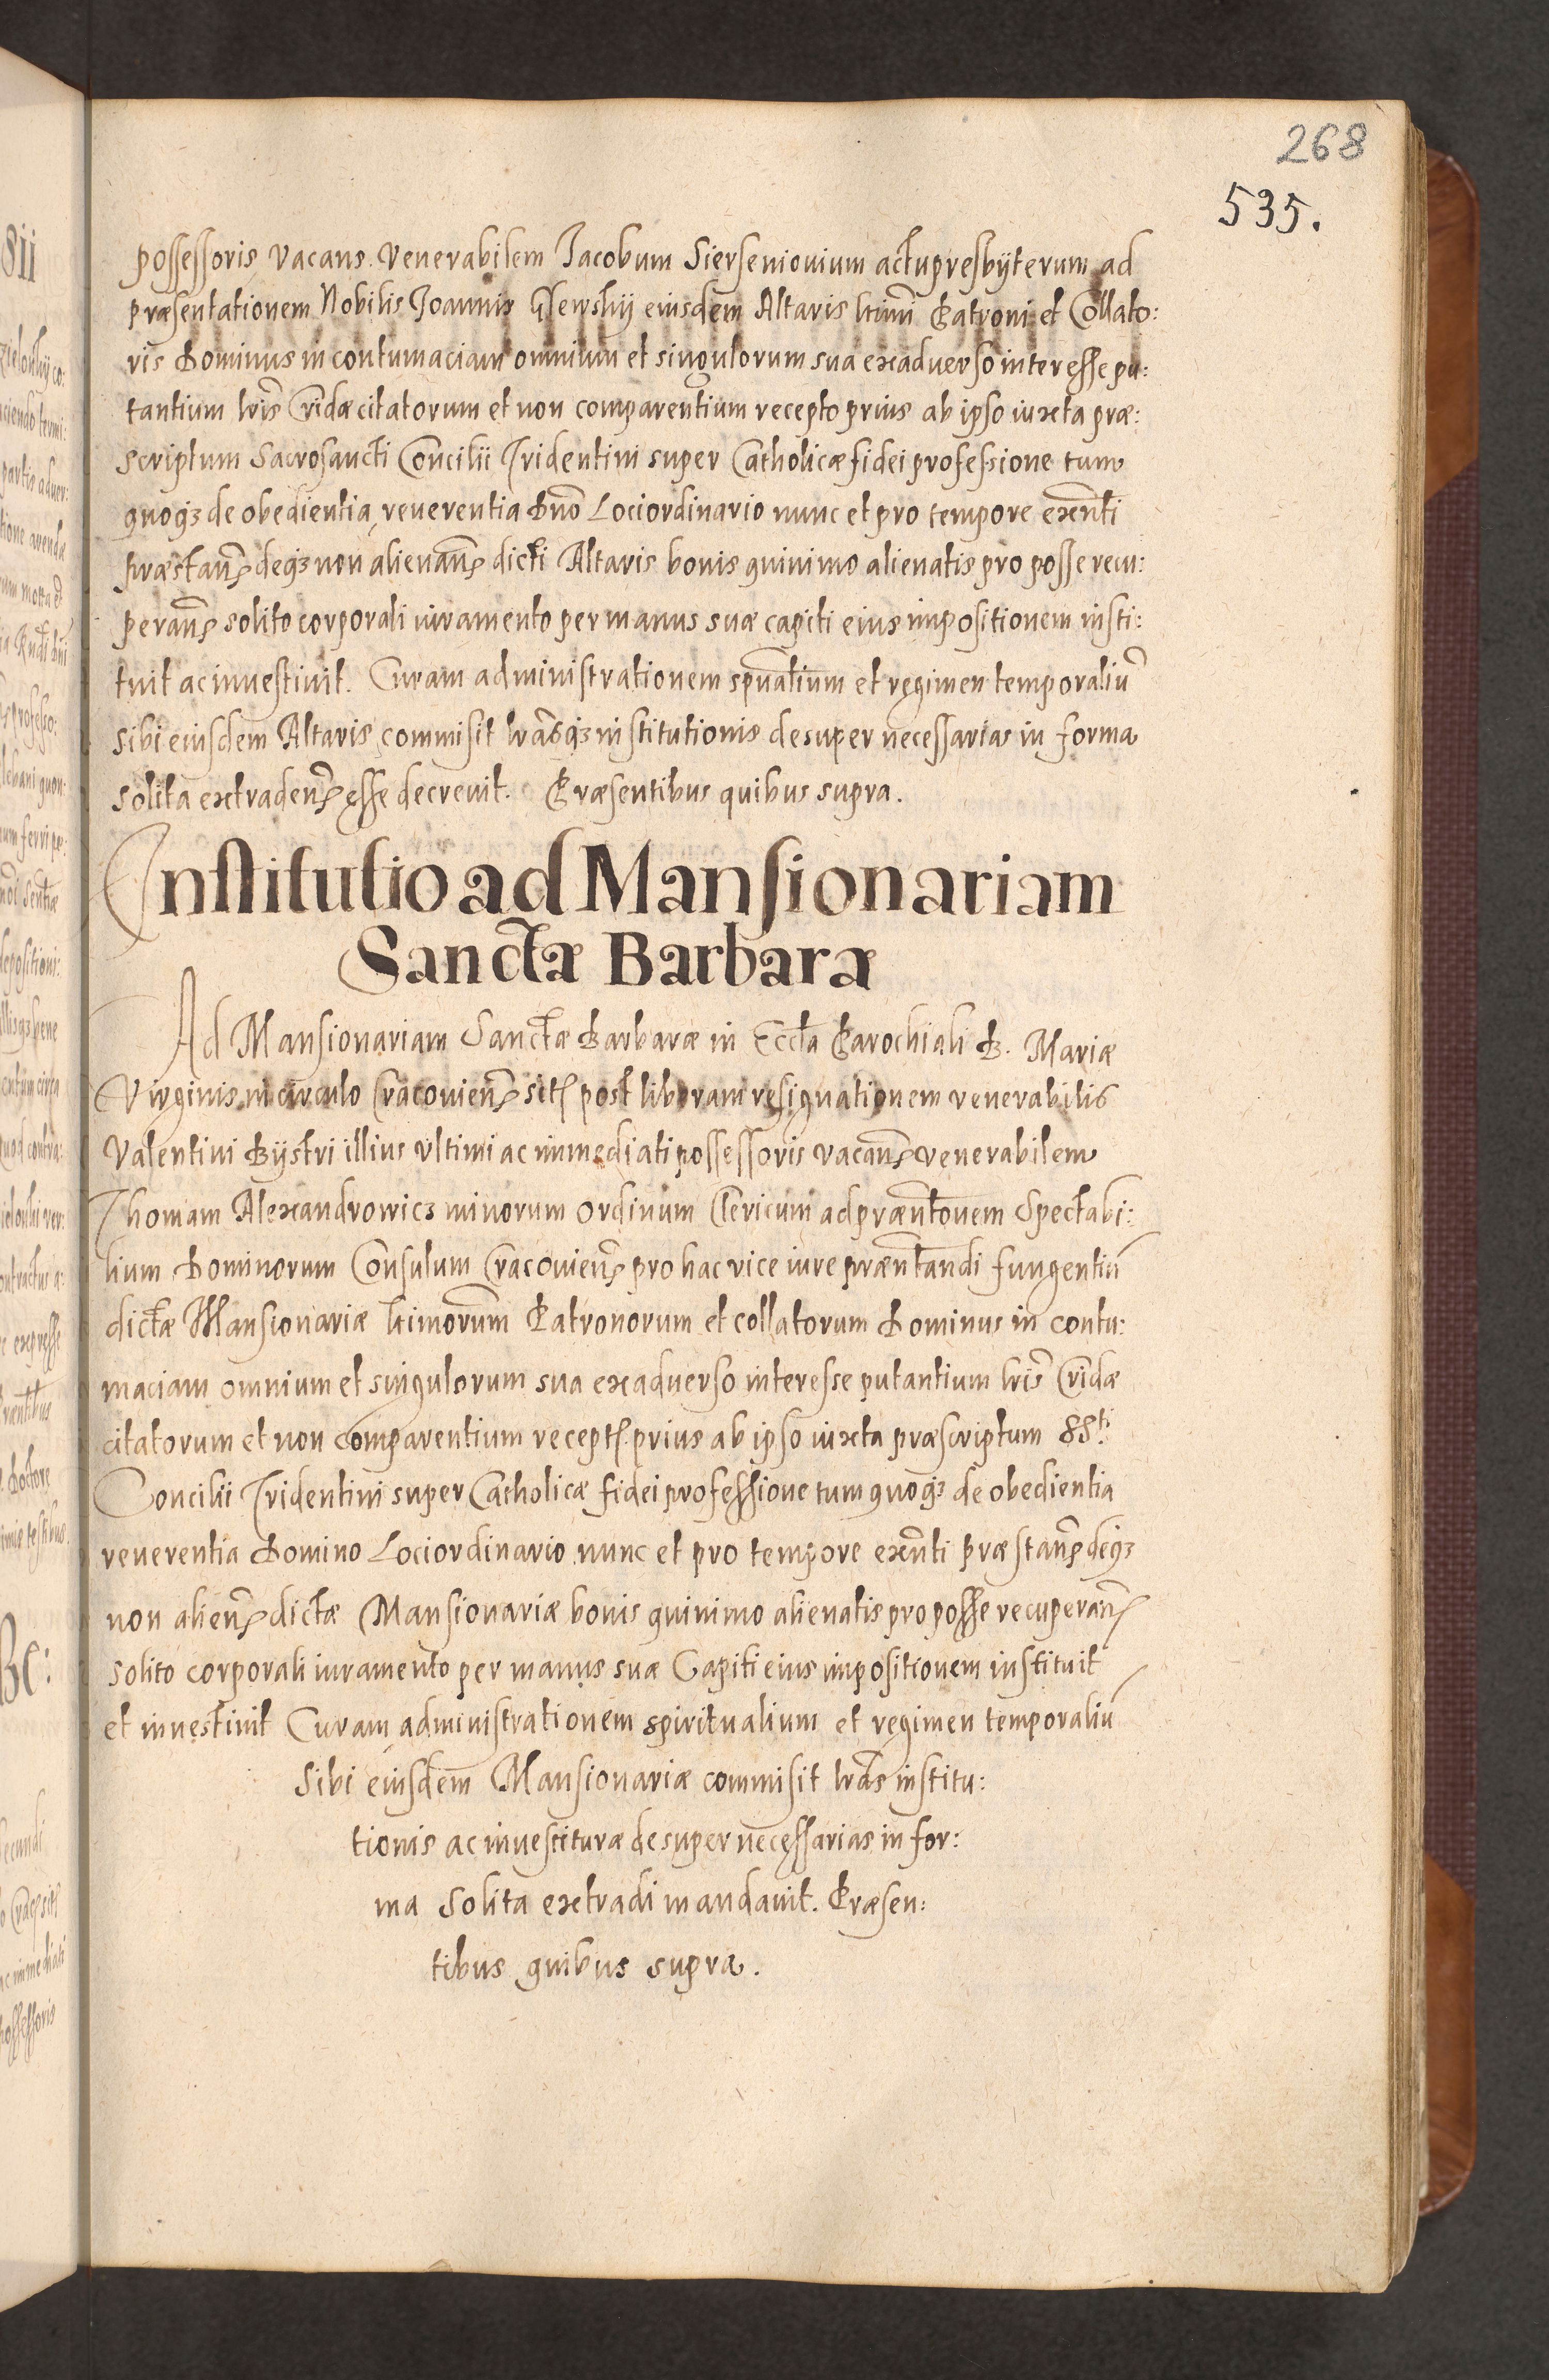 268
535.
possessoris vacans. Venerabilem Jacobum Sierseniouium actu presbÿterum ad
præsentationem Nobilis Joannis eiusdem Altaris ltimi Patroni et Collato:
ris Dominus in contumaciam omnium et singulorum sua ex aduerso interesse pu:
tantium lris Cridæ citatorum et non comparentium recepto prius ab ipso iuxta præ:
scriptum Sacrosancti Concilii Tridentini super Catholicæ fidei professione tum
quoqꝫ de obedientia, reuerentia Dno Lociordinario nunc et pro tempore exnti
præstan̄ deqꝫ non alienan̄ dicti Altaris bonis quinimo alienatis pro posse recu:
peran̄ solito corporali iuramento per manus suæ capiti eius impositionem insti:
tuit ac inuestiuit. Curam administrationem spūalium et regimen temporaliū
sibi eiusdem Altaris commisit lrasqꝫ institutionis desuper necessarias in forma
solita extraden̄ esse decreuit. Præsentibus quibus supra.
Institutio ad Mansionariam
Sanctæ Barbaræ
Ad Mansionariam Sanctæ Barbaræ in Eccla Parochiali B. Mariæ
Virginis in circulo Cracouien̄ sit post liberam resignationem venerabilis
Valentini Bÿstri illius vltimi ac immediati possessoris vacan̄ venerabilem
Thomam Alexandrowicz minorum ordinum Clericum ad præntōnem Spectabi:
lium Dominorum Consulum Cracouien̄ pro hac vice iure præntandi fungentiū
dictæ Mansionariæ ltimorum Patronorum et collatorum Dominus in contu:
maciam omnium et singulorum sua ex aduerso interesse putantium lris Cridæ
citatorum et non comparentium recept prius ab ipso iuxta præscriptum SSti
Concilii Tridentini super Catholicæ fidei professione tum quoqꝫ de obedientia
reuerentia Domino Lociordinario nunc et pro tempore exnti præstan̄ deqꝫ
non alien̄ dictæ Mansionariæ bonis quinimo alienatis pro posse recuperan̄
solito corporali iuramento per manus suæ Capiti eius impositionem instituit
et inuestiuit Curam administrationem spiritualium et regimen temporaliū
sibi eiusdem Mansionariæ commisit lras institu:
tionis ac inuestituræ desuper necessarias in for:
ma solita extradi mandauit. Præsen:
tibus quibus supra.